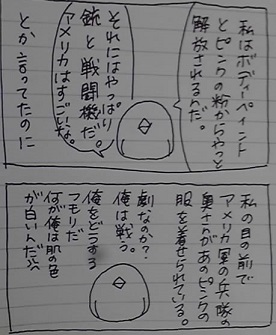 私はボディーペイント
とピンクの粉からやっと
解放されるんだ。
それにはやっぱり
銃と戦闘機だ。
アメリカはすごいな。
とか言ってたのに
私の目の前で
アメリカ軍の兵隊の
奥さんがあのピンクの
服を着せられている。
劇なのか?
俺は戦う。
俺をどうする
フモリだ
何が俺は肌の色
が白いんだ